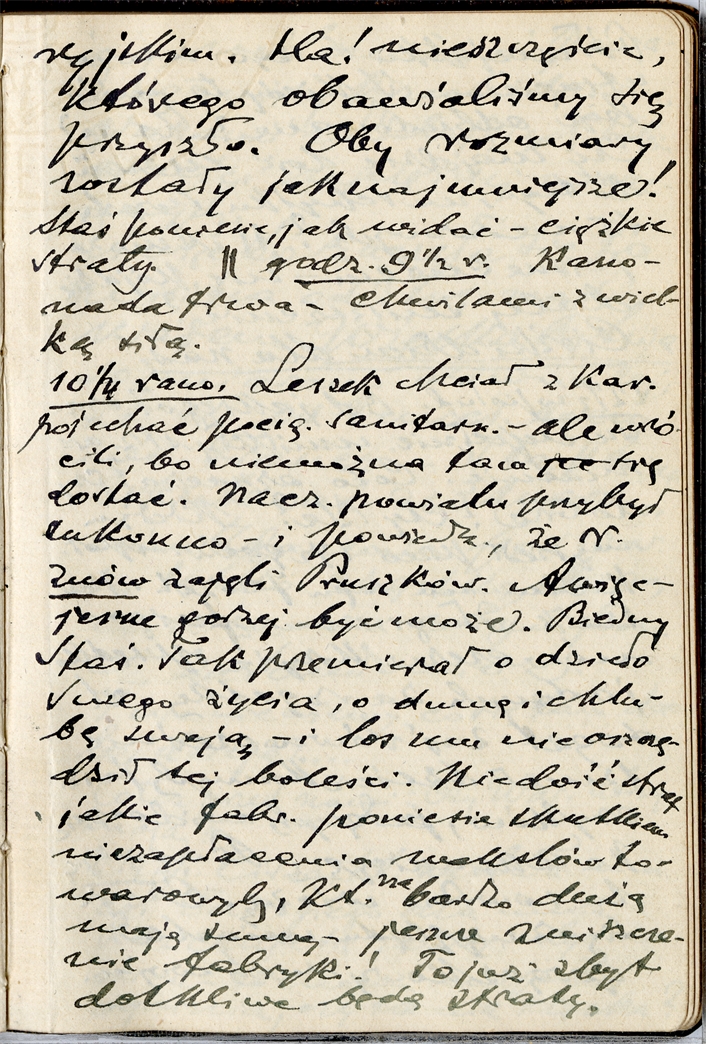 ryjskim. Ha! nieszczęście,
którego obawialiśmy się
przyszło. Oby rozmiary
zostały jaknajmniejsze!
Staś poniesie, jak widać – ciężkie
straty. || godz. 9 1/2 r. Kano-
nada trwa – chwilami z wiel-
ką siłą.
10 1/4 rano. Leszek chciał z Kar.
pojechać pocią. sanitarn. – ale wró-
cili, bo niemożna tam się
dostać. Nacz. powiatu przybył
 – i powiedz., że N.
znów zajęli Pruszków. A więc –
jeszcze gorzej być może. Biedny
Staś. Tak przemierał o dzieło
swego życia, o dumę i chlu-
bę swoją, – i los mu nie oszczę-
dził tej boleści. Niedość strat
jakie fabr. poniesie skutkiem
niezapłacenia wekslów to-
warowych, kt. na bardzo dużą
mają sumę – jeszcze zniszcze-
nie fabryki! To już zbyt
dotkliwe będą straty.